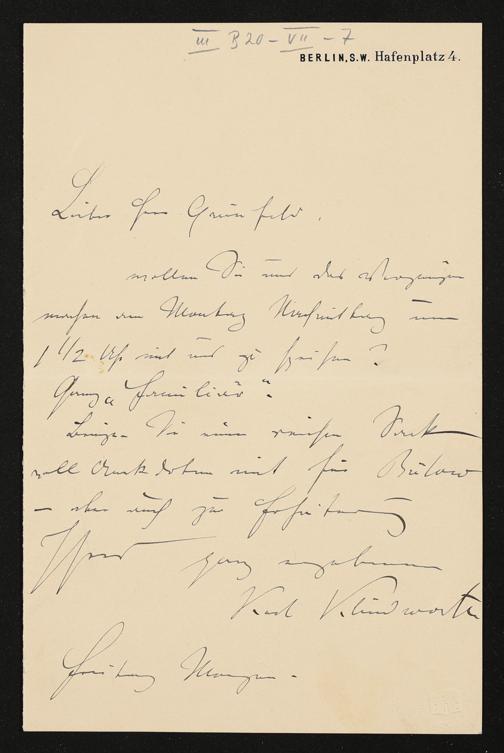 III B 20 - VII - 7
BERLIN, S.W. Hafenplatz 4.
Lieber Herr Grünfeld,
wollen Sie uns das Vergnügen
machen am Montag Nachmittag um
1 1/2 Uhr mit uns zu speisen?
Ganz "familiär".
Bringen Sie einen Sack
voll Anekdoten mit für Bülow
– aber auch zur
Ihr ganz ergebener
Karl Klindworth
Freitag Morgen.